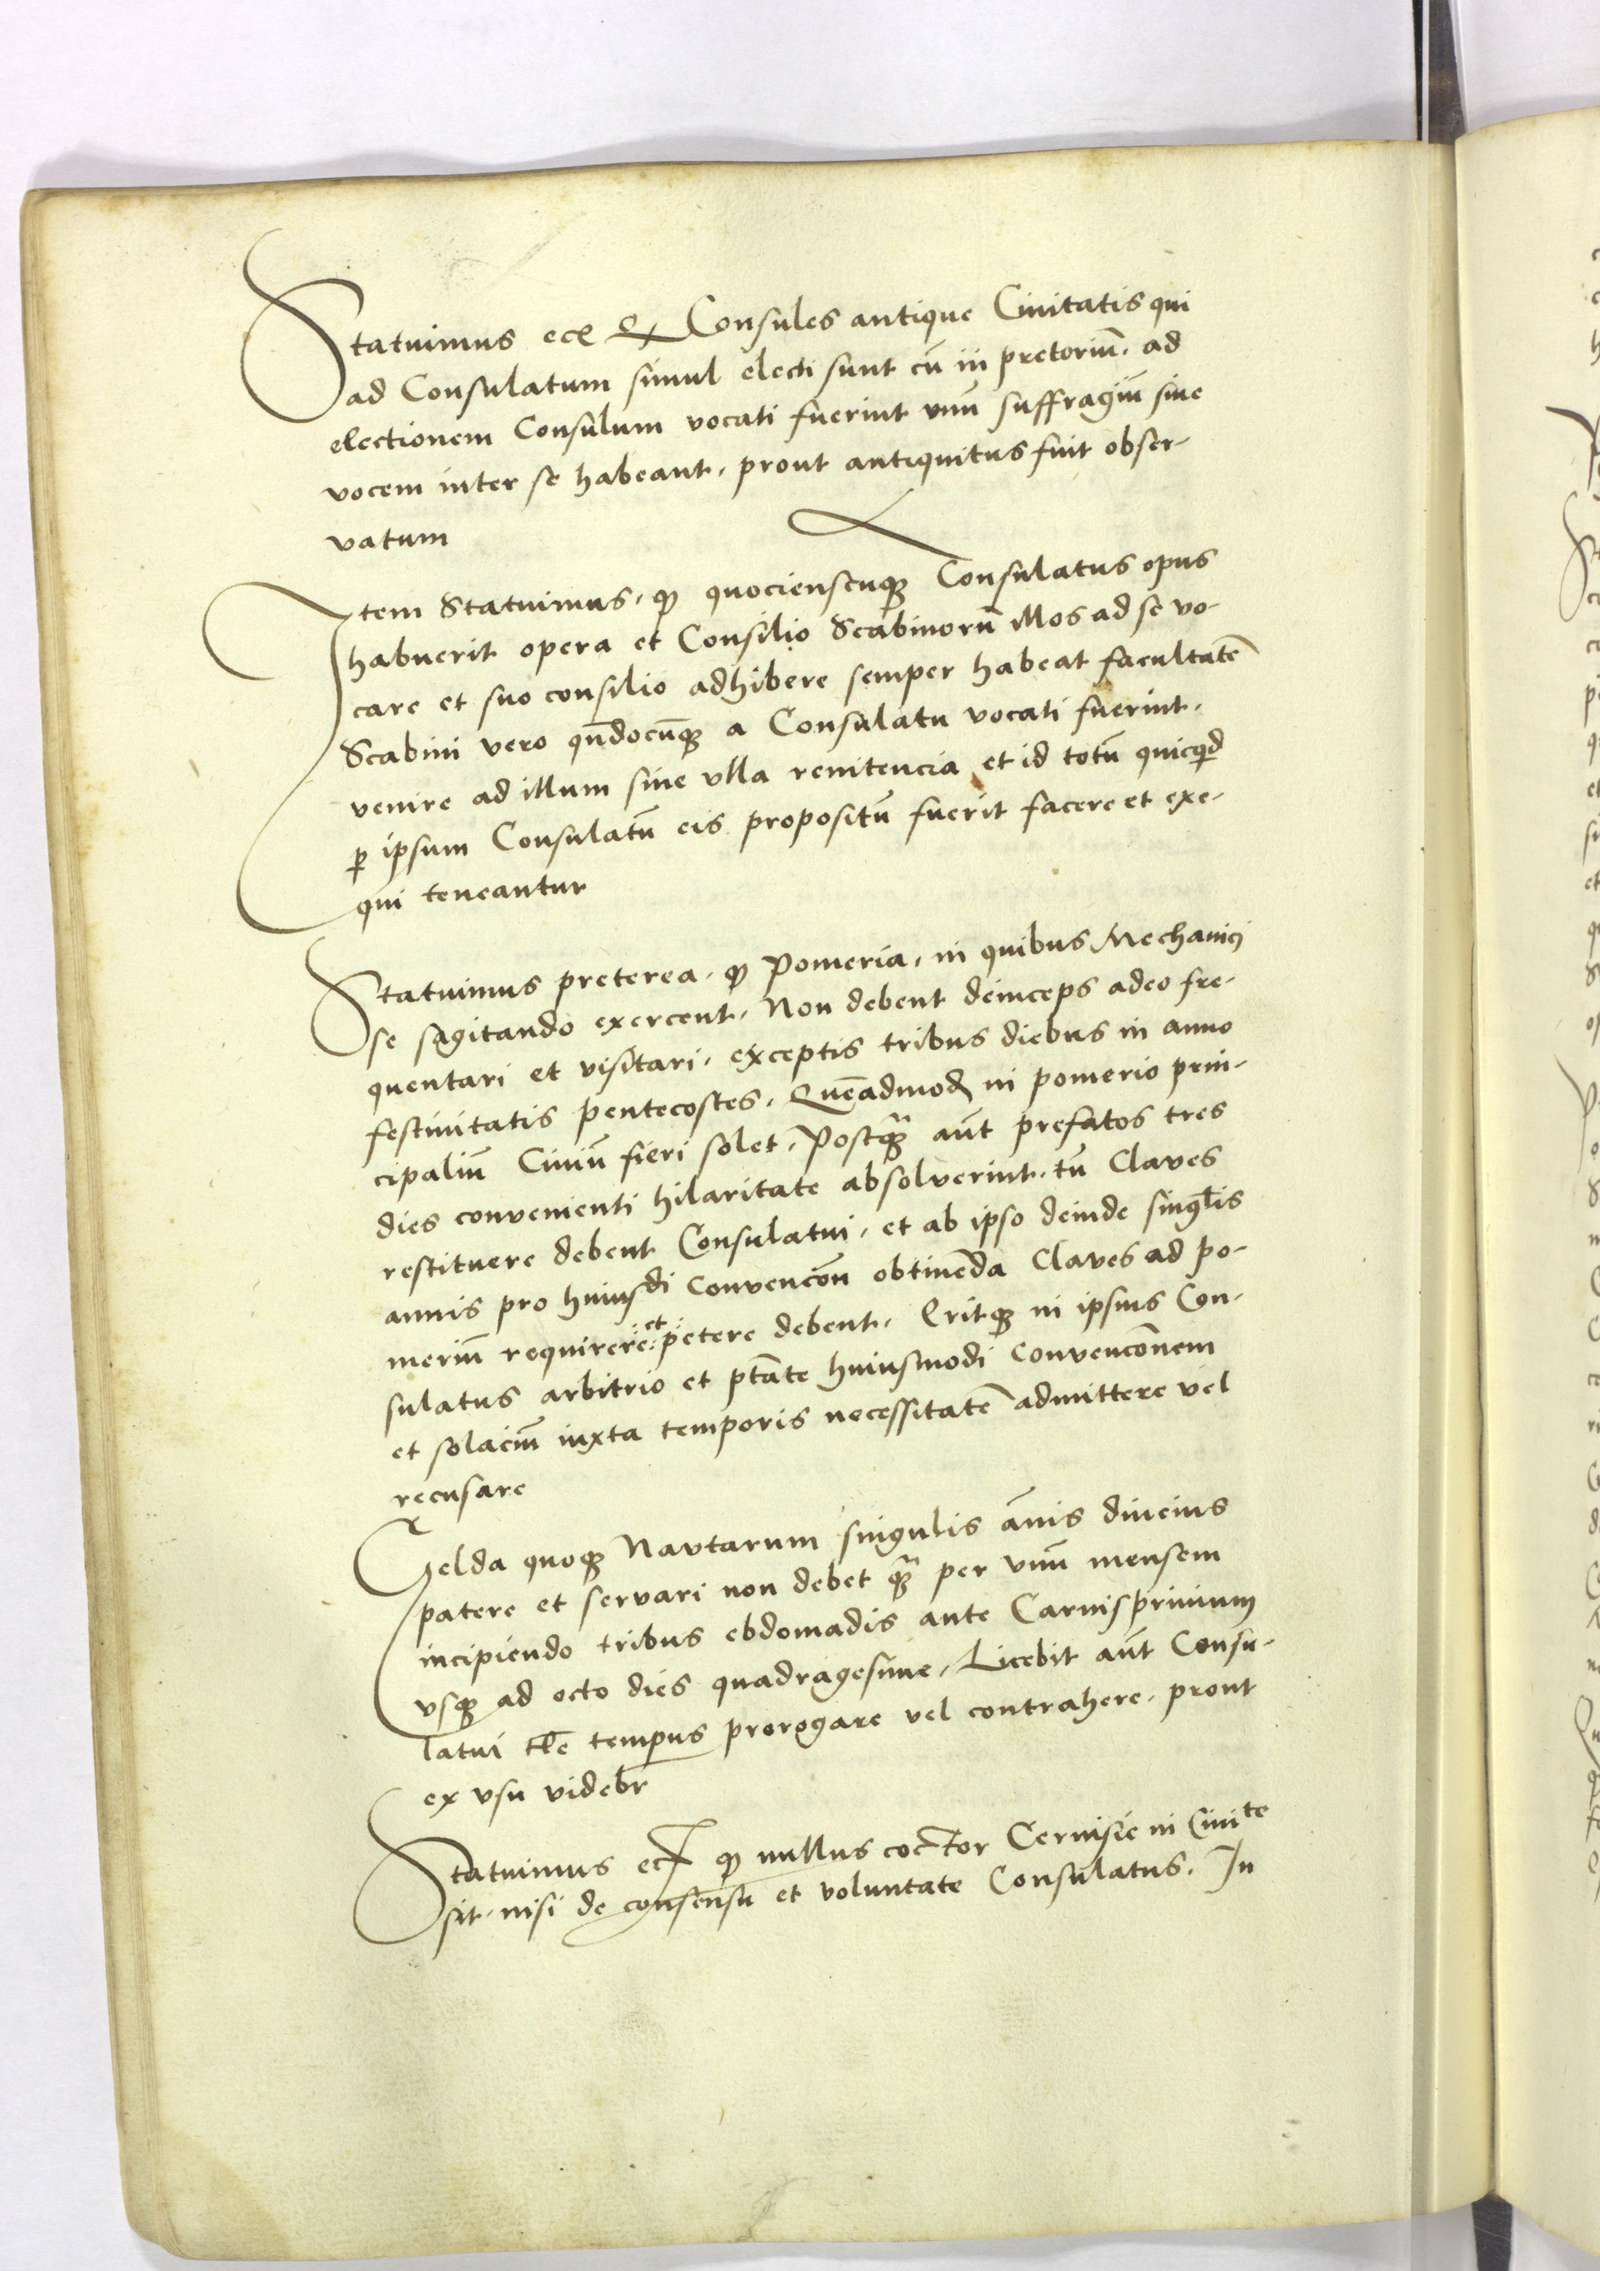 Statuimus ecā ꝙ Consules antique Ciuitatis qui
ad Consulatum simul electi sunt cū in pretoriū. ad
electionem Consulum vocati fuerint vnū suffragiū siue
vocem inter se habeant, prout antiquitus fuit obser-
vatum
Item Statuimus, ꝙ quociensicuqꝫ Consulatus opus
habuerit opera et Consilio Scabinorū illos ad se vo-
care et suo consilio adhibere semper habeat facultatē
Scabini vero qn̄docūqꝫ a Consulatu vocati fuerint,
venire ad illum sine vlla renitencia et id totū quicqͥd
ꝑ ipsum Consulatū eis propositū fuerit facere et exe-
qui teneantur
Statuimus preterea, ꝙ Pomeria, in quibus Mechanici
se sagitando exercent, Non debent deinceps adeo fre-
quentari et visitari, exceptis tribus diebus in anno
festiuitatis Pentecostes, Quēadmodꝫ in pomerio prin-
cipaliū Ciuiū fieri solet, Postqꝫ̄ aūt prefatos tres
dies convenienti hilaritate absolverint, tū Claves
restituere debent Consulatui, et ab ipso deinde singl̄is
annis pro huiusdi convencōn obtinenda Claves ad po-
meriū requirere et petere debent, Eritqꝫ in ipsius Con-
sulatus arbitrio et ptāte huiusmodi convencōnem
et solaciū iuxta temporis necessitatē admittere vel
recusare
Gelda quoqꝫ Navtarum singulis ānis diucius
patere et servari non debet qꝫ̄ per vnū mensem
incipiendo tribus ebdomadis ante Carnispriuium
vsqꝫ ad octo dies quadragesime, Licebit aūt Consu-
latui tl̄e tempus prorogare vel contrahere, prout
ex vsu videbr̄
Statuimus ecā ꝙ nullus coctor Cervisie in Ciuite
sit, nisi de consensu et voluntate Consulatus. In